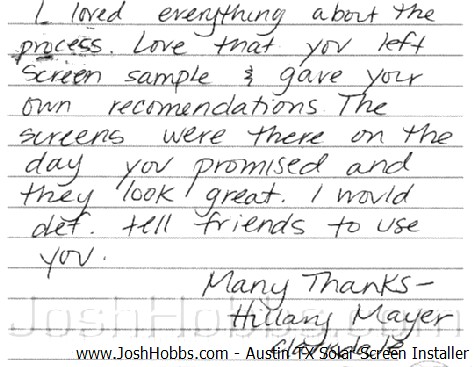 I loved everything about the
process. Love that you left
screen sample & gave your
own recomendations. The
screens were there on the
day you promised and
they look great. I would
def. tell friends to use
you.
Many Thanks-
Hillary Mayer
JoshHobbs.com
www.JoshHobbs.com - Austin TX Solar Screen Installer